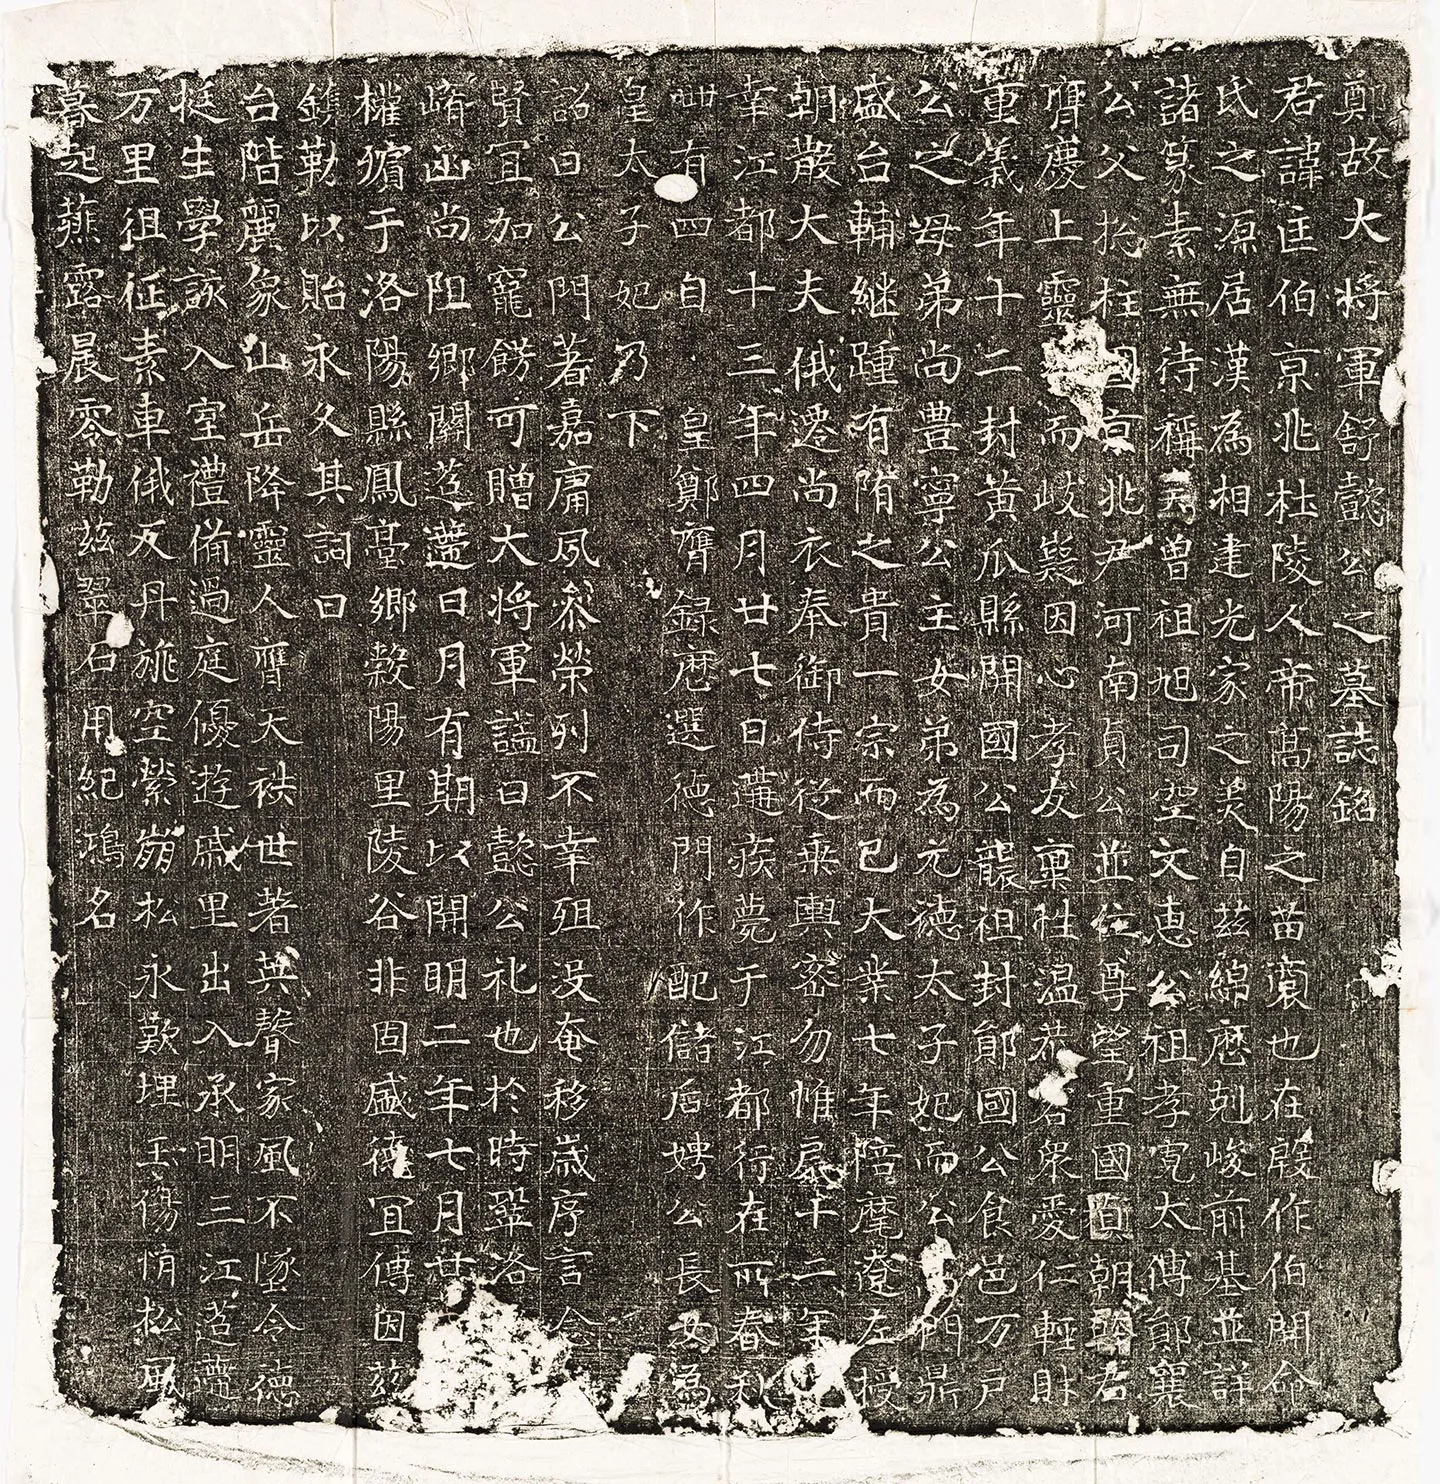 鄭故大將軍舒懿公之墓誌銘
君諱匡伯京兆杜陵人帝高陽之苗裔也在殷作伯開命
氏之源居漢為相建光家之美自茲綿曆剋峻前基並詳
諸篆素無待稱言曾祖旭司空文惠公祖孝寬太傅鄖襄
公父抌柱國京兆尹河南貞公並位尊望重國貞朝幹君
膺慶上靈而岐嶷因心孝友稟性溫恭眾愛仁輕財
重義年十二封黃瓜縣開國公襲祖封鄖國公食邑万戶
公之母弟尚豊寧公主女弟為元德太子妃而公門鼎
盛台輔繼踵有隋之貴一宗而已大業七年陪麾遼左授
朝散大夫俄遷尚衣奉御侍從乘輿密勿惟扆十二年
幸江都十三年四月廿七日遘疾薨于江都行在所春秋
卌有四自 皇鄭膺録庶選德門作配儲后娉公長女為
皇太子妃乃下
詔曰公門著嘉庸夙叅榮列不幸殂没奄移歲序言念
賢宜加寵餝可贈大將軍謚曰懿公礼也於時鞏洛
崤函尚阻鄉關遼遰日月有期以開明二年七月廿
權殯于洛陽縣鳳臺鄉穀陽里陵谷非固盛德冝傳因茲
鐫勒以貽永久其詞曰
台階麗象山岳降靈人膺天袟世著英聲家風不墜令德
挺生學詠入室禮備過庭優遊戚里出入承明三江遼遰
万里徂征素車俄反丹旐空縈崩松永歎埋玉傷情松風
暮起薤露晨零勒茲翠石用紀鴻名